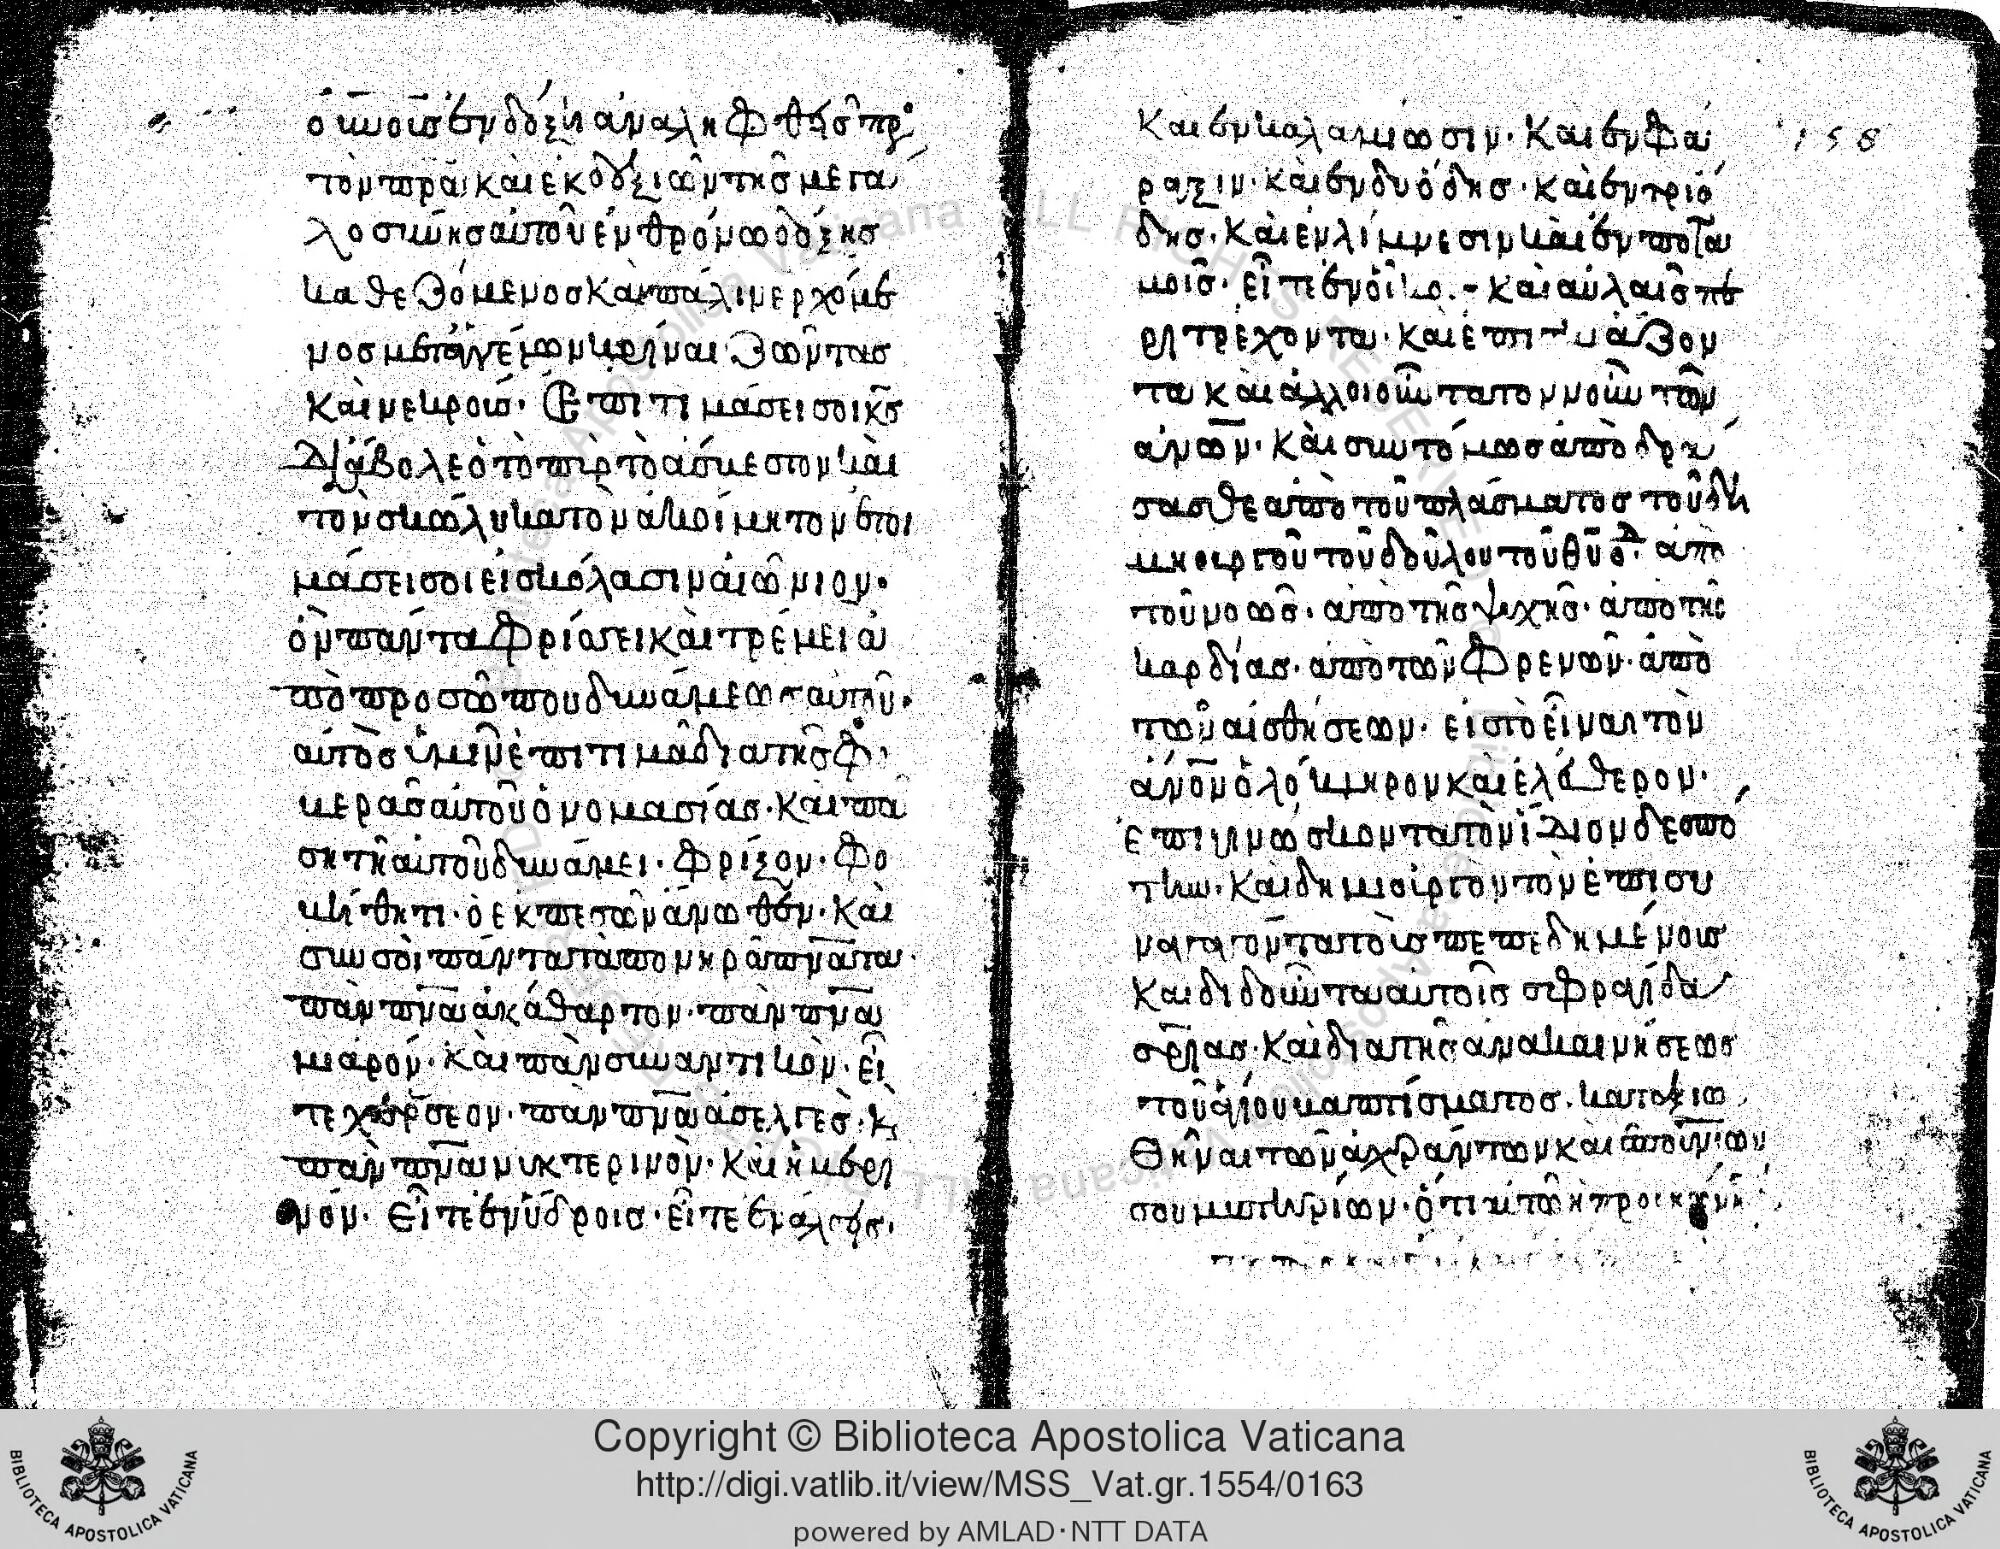 ὁ κυνοῖσ ἐν δόξη ἀναληφθεὶσ πρ
τὸν πρᾶ καὶ ἐκ δεξιῶν τῆσ μεγα
λοσύνησ αὐτοῦ ἐν θρόνω δόξησ
καθεζόμενοσ καὶ πάλιν ερχόμε
νοσ μετ ἀγγέλων κρῖναι ζῶντασ
καὶ νεκροὺσ. Ἐπιτιμάσει σοι κσ
διάβολε ὁ τὸ πῦρ τὸ ἄσβεστον καὶ
τὸν σκώληκα τὸν ἀκοίμητον ἑτοι
μάσει σοι εἰσ κόλασιν αἰώνιον.
ὁν πάντα φρίσσει καὶ τρέμει ἀ
πὸ προσώπου δυνάμεωσ αὐτοῦ.
αὐτὸσ ὑμῖν ἐπιτιμᾶ διὰ τῆσ φο
κερᾶσ αὐτοῦ ὀνομασίασ. καὶ πά
ση τῆ αὐτοῦ δυνάμει. φρίξον. φο
κήθητι. ὁ ἐκπεσῶν ἄνωθεν. καὶ
σὺν σοὶ πάντα τὰ πονηρὰ πνᾶτα.
πὰν πνᾶ ἀκάθαρτον. πὰν πνᾶ
μιαρόν. καὶ πὰν συναντικὸν. εἴ
τε χερσεον. πὰν πνᾶ ἀσελγὲσ. κ
πὰν πνᾶ νυκτερινὸν. καὶ ἡμερι
νόν. εἴτε ἐν ὕδροισ. εἴτε ἐν ἄλσεσι.
Καὶ ἐν καλάμωσιν. καὶ ἐν φά
ραξιν. καὶ ἐν δυόδησ. καὶ ἐν τριό
δησ. καὶ ἐν λίμνεσιν καὶ ἐν ποτα
μοῖσ. εἴτε ἐν οἴκο. καὶ αὐλαῖσ πε
ριτρέχοντα. καὶ ἐπι
τα καὶ ἀλλοιοῦντα τον νοῦν τῶν
ἀνῶν. καὶ συντόμωσ ἀποδρά
σασθε ἀπὸ τοῦ πλάσματοσ τοῦ δη
μηουργοῦ τοῦ δούλου τοῦ θῦ ὁδ. ἀπὸ
τοῦ νοωσ. ἀπὸ τῆσ ψυχῆσ. ἀπὸ τῆσ
καρδίασ. ἀπὸ τῶν φρενῶν. ἀπὸ
τῶν αἰσθήσεων. εἰσ τὸ εἶναι τὸν
ἀνὸν ὁλόκληρον καὶ ἐλεύθερον.
ἐπιγινώσκοντα τὸν ἴδιον δεσπό
την. καὶ δημιοῦργον τὸν ἐπισυ
ναγαγόντα τοὺσ πεπεδημένουσ
καὶ διδοῦντα αὐτοῖσ σφραγίδα
σρίασ. καὶ διὰ τῆσ ἀνακαινήσεωσ
τοῦ ἁγίου καπτίσματοσ. καταξιω
θῆναι τῶν ἀχράντων καὶ ἐπουνίων
σου μυστηρίων. ὅτι
158
Copyright © Biblioteca Apostolica Vaticana
http://digi.vatlib.it/view/MSS_Vat.gr.1554/0163
powered by AMLAD·NTT DATA
BIBLIOTECA APOSTOLICA VATICANA
BIBLIOTECA APOSTOLICA VATICANA